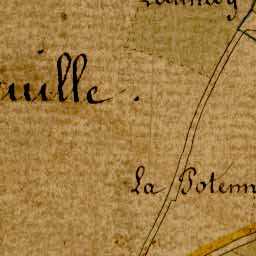 uille.
La Potenn